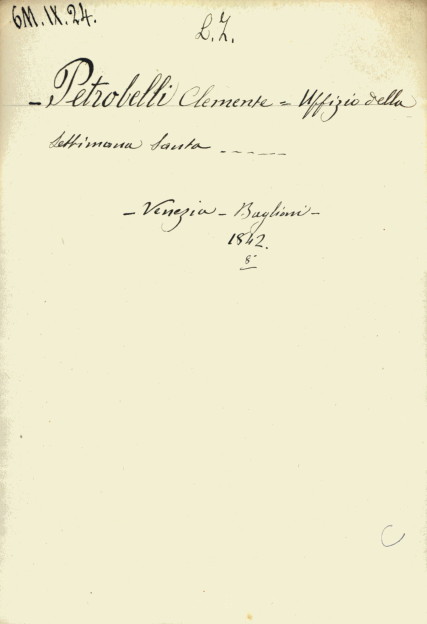 6M.IX.24.
L.Z.
- Petrobelli Clemente = Uffizio della
Settimana Santa -----
- Venezia - Baglioni -
1842.
8°